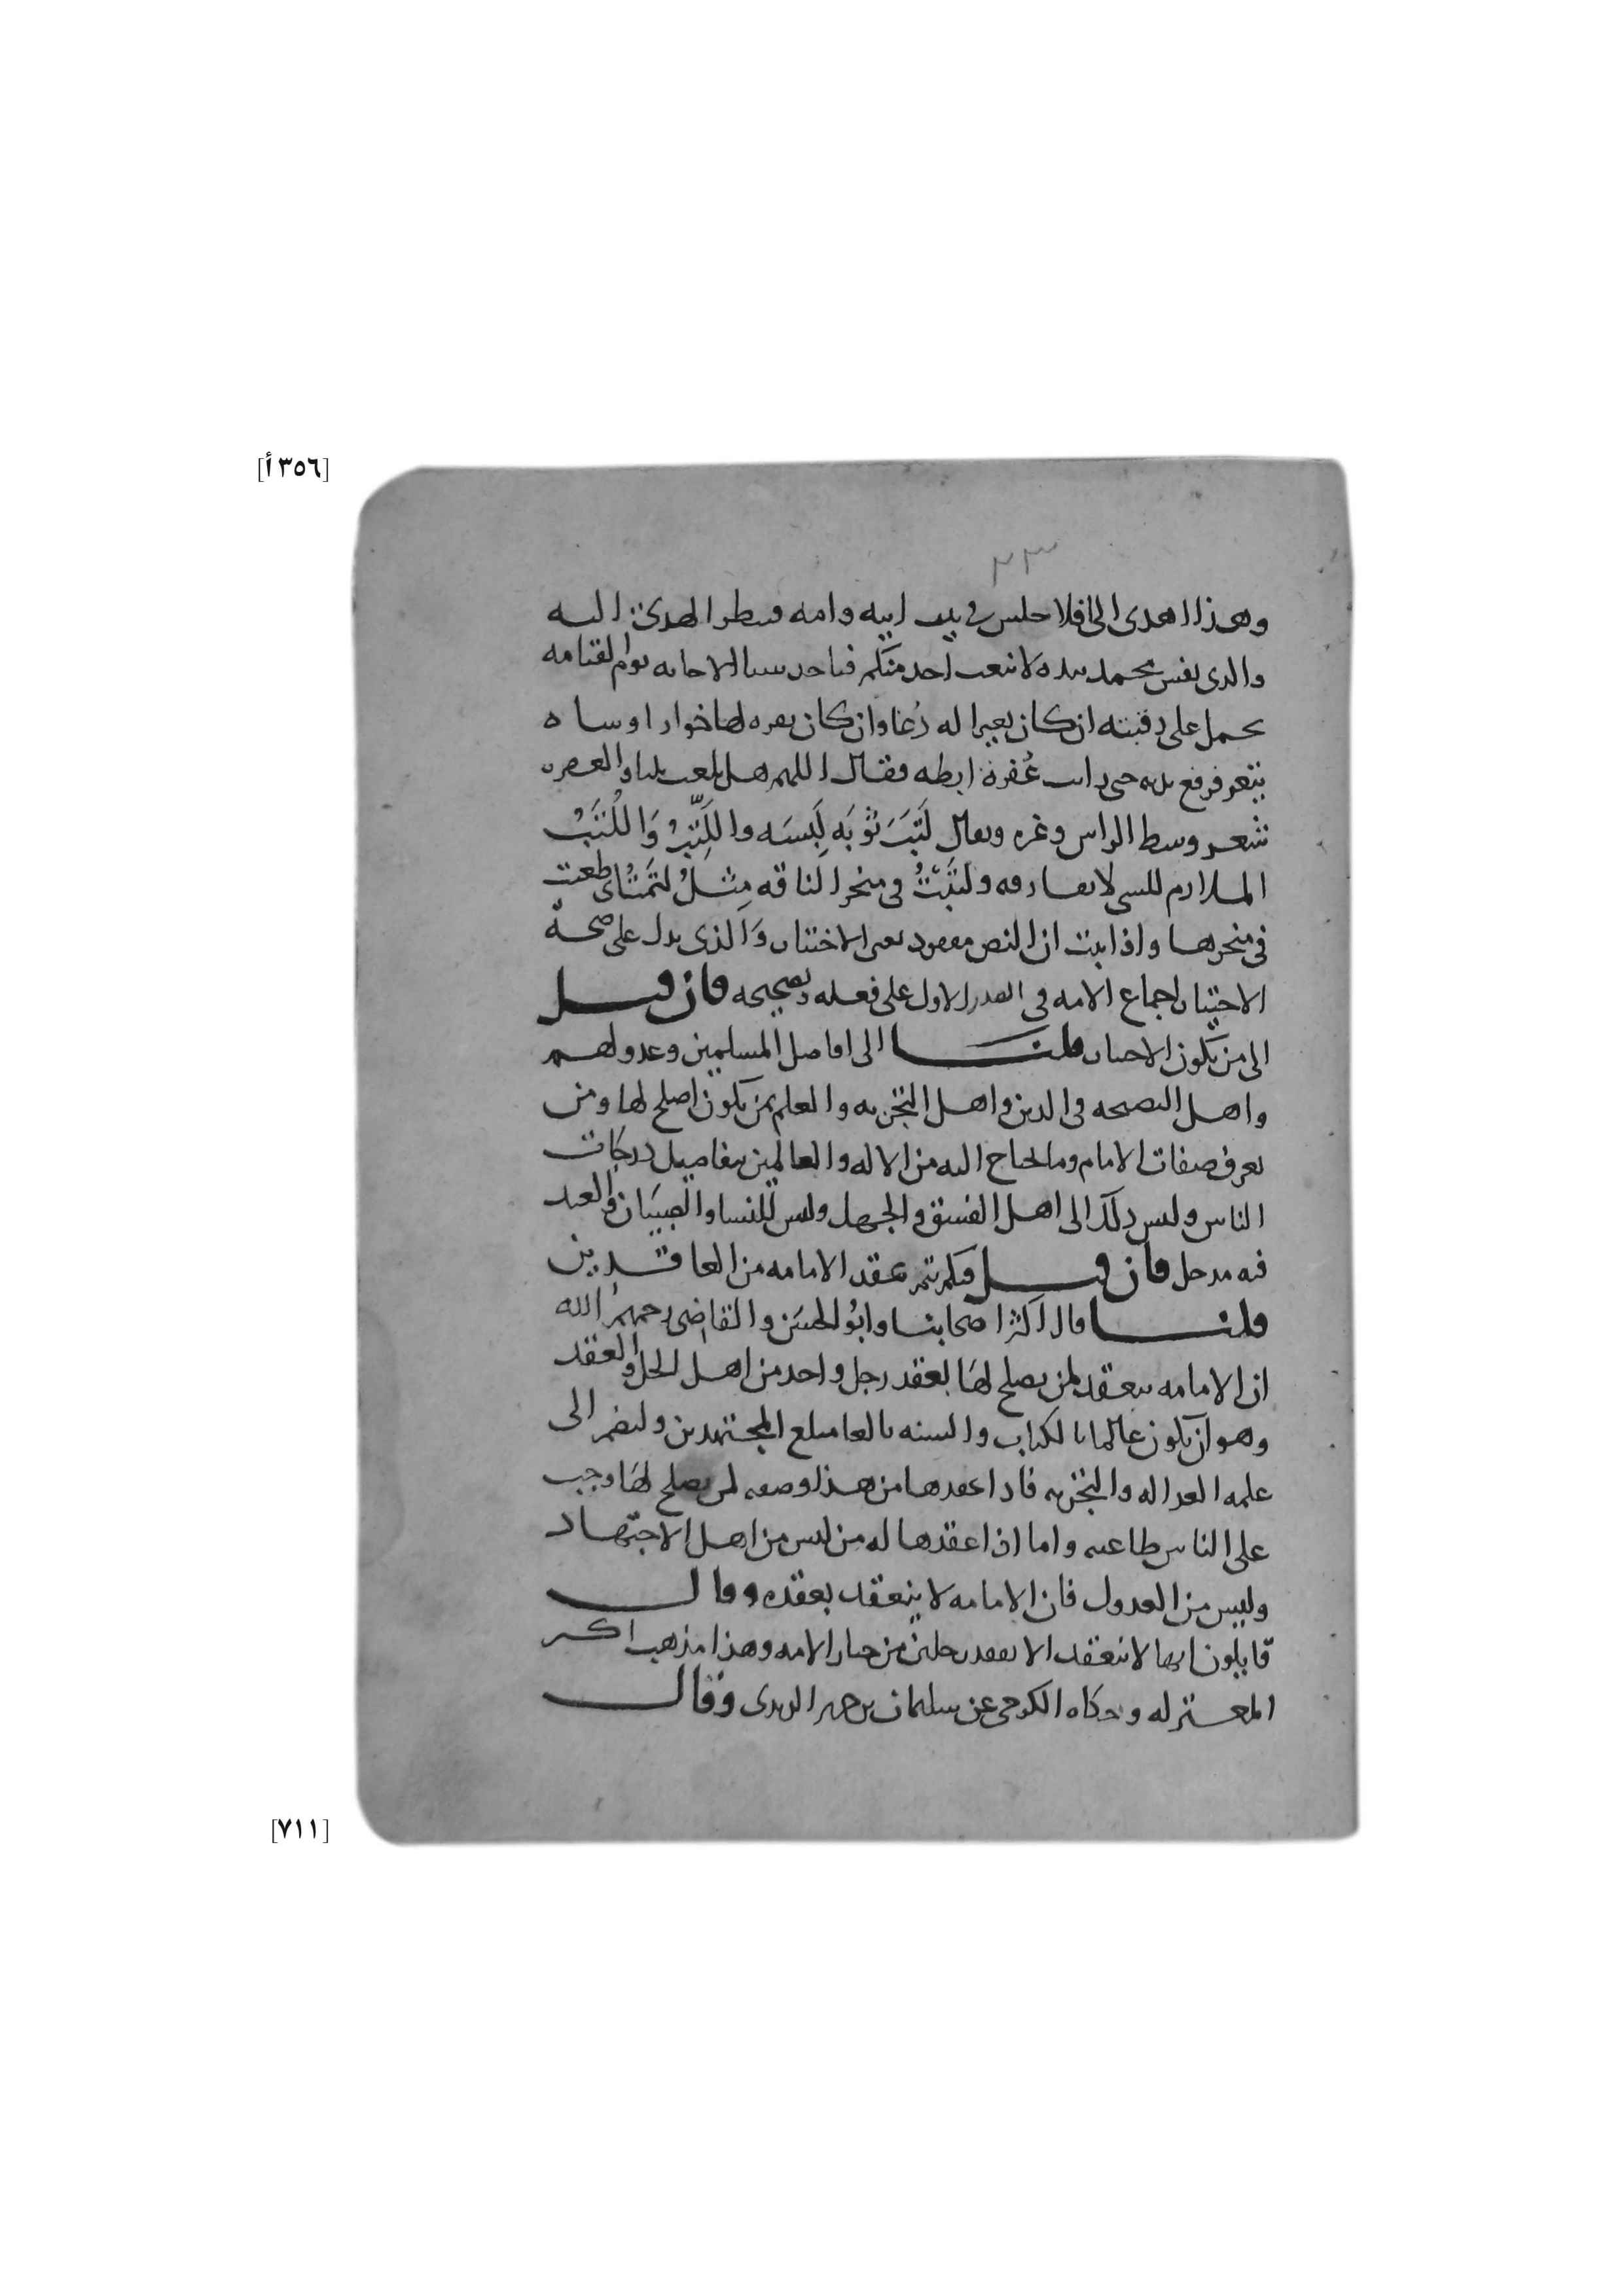 [٣٥٦ أ]
٢٣
وهذا اهدى الي افلا جلس في بيت ابيه وامه فينظر الهدية اليه
والذي نفس محمد بيده لا نبعث احد منكم فياخذ شيئا الا جا به يوم القيامه
يحمل على رقبته ان كان بعيرا له رُغا وان كان بقره لها خوار او شاه
تيعر فرفع يديه حتى رايت عُفرة ابطه فقال اللهم هل بلغت ثلثا والعفره
شعر وسط الراس وغيره ويقال لَتَبَ ثَوْبَه لَبِسَه واللَّتِبُ وَاللُتَبُ
الملازم للشي لا يفارقه ولَتَبْتُ في منحر الناقه مِثلُ لَتَمْتُ اي طعنت
في منحرها واذا ثبت ان النص مفقود بقي الاختيار وَالذي يدل على صحة
الاختيار اجماع الامه في الصدر الاول على فعله وتصحيحه فان قيل
الى من يكون الاختيار قلنا الى افاضل المسلمين وعدولهم
واهل النصيحه في الدين واهل التجربه والعلم بمن يكون اصلح لها ومن
يعرف صفات الامام وما يحتاج اليه من الاله والعالمين بتفاصيل درجات
الناس وليس ذلك الى اهل الفسق والجهل وليس للنسا والصبيان والعبد
فيه مدخل فان قيل فبكم تتم عقد الامامه من العاقدين
قلنا قال اكثر اصحابنا وابو الحسن والقاضي رحمهم الله
ان الامامه تنعقد لمن يصلح لها بعقد رجل واحد من اهل الحل والعقد
وهو ان يكون عالما بالكتاب والسنه بالغا مبلغ المجتهدين وينضم الى
علمه العداله والتجربه فاذا عقدها من هذا وصفه لمن يصلح لها وجب
على الناس طاعته واما اذا عقدها له من ليس من اهل الاجتهاد
وليس من العدول فان الامامه لا ينعقد بعقده وقال
قايلون انها لا تنعقد الا بعقد رجلين من خيار الامه وهذا مذهب اكثر
المعتزله وحكاه عن سليمان بن جرير الزيدي وقال
[٧١١]